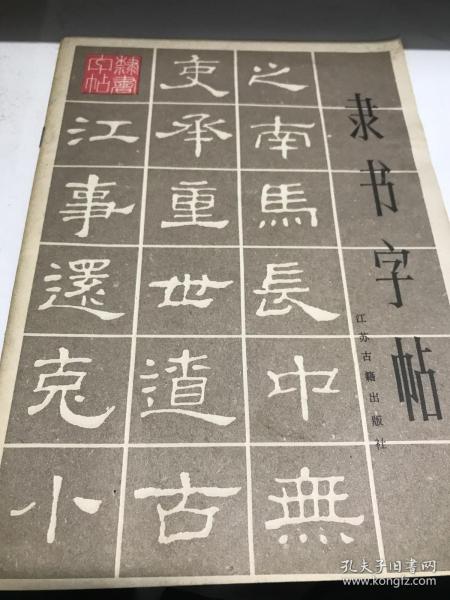 隶书字帖
江苏古籍出版社
隸書字帖
之南馬長中無
吏承重世遺古
江事還克小
孔夫子旧书网
www.kongfz.com